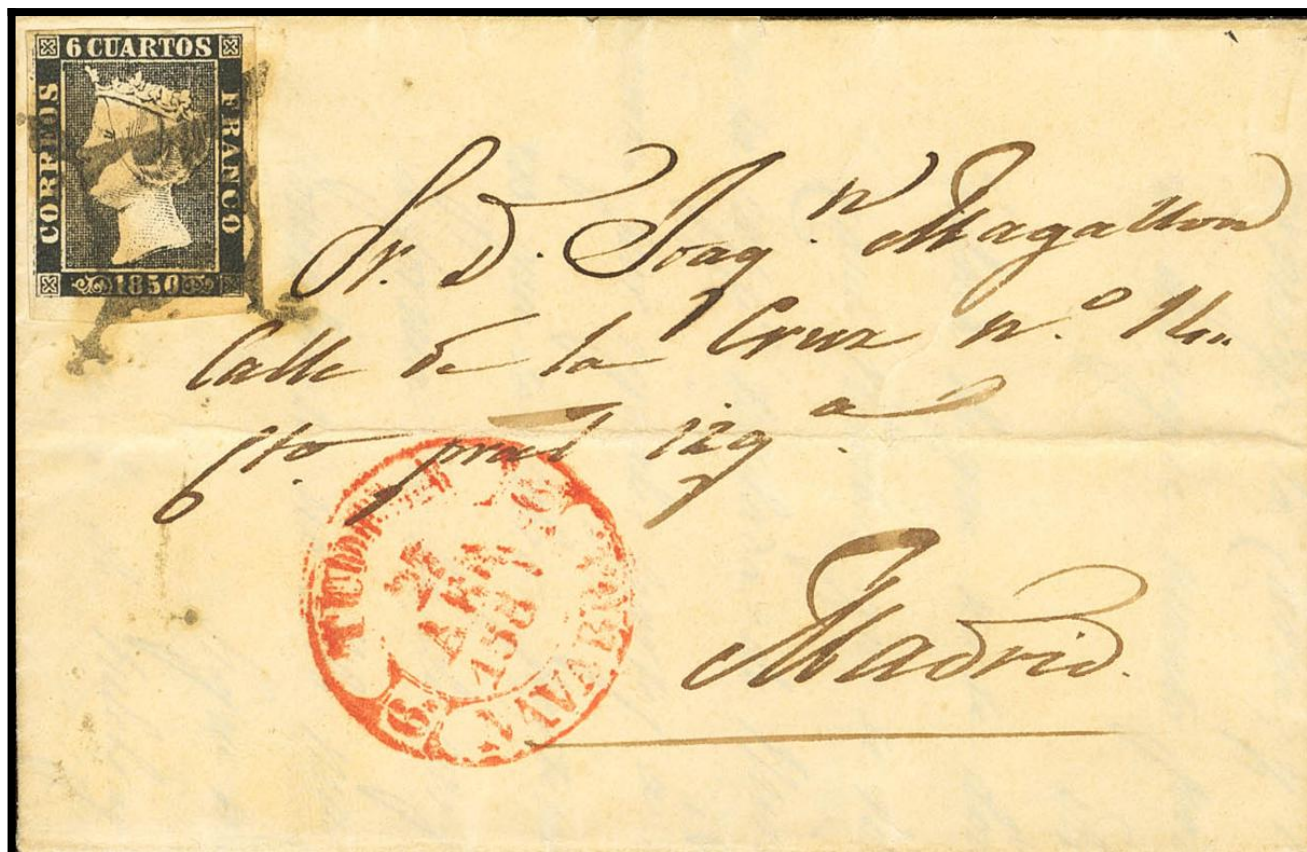 6 CUARTOS
CORREOS
FRANCO
1850
Sr. D. Joaqn. Magallon
Calle de la Cruz nº. 14
pral izqª.
Madrid.
TUDELA
6
ABR
NAVARRA
6